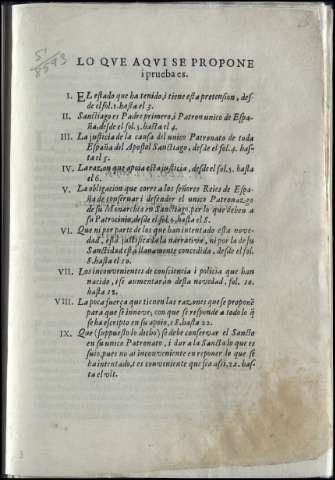 S/
8593
LO QVE AQVI SE PROPONE
i prueba es.
I. EL estado que ha tenido, i tiene esta pretension, des-
de el fol. 1. hasta el 3.
II. Sanctiago es Padre primero, i Patron unico de Espa-
ña, desde el fol. 3. hasta el 4.
III. La justicia de la causa del unico Patronato de toda
España del Apostol Sanctiago, desde el fol. 4. has-
ta el 5.
IV. La razon que apoia esta justicia, desde el fol. 5. hasta
el 6.
V. La obligacion que corre a los señores Reies de Espa-
ña de conservar i defender el unico Patronazgo
de su Monarchia en Sanctiago, por lo que deben a
su Patrocinio, desde el fol. 6. hasta el 8.
VI. Que ni por parte de los que han intentado esta nove-
dad, està justificada la narrativa, ni por la de su
Sanctidad està llanamente concedida, desde el fol.
8. hasta el 10.
VII. Los inconvenientes de consciencia i policia que han
nacido, i se aumentaràn desta novedad, fol. 10.
hasta 18.
VIII. La poca fuerça que tienen las razones que se proponē
para que se innove, con que se responde a todo lo q̃
se ha escripto en su apoio, 18. hasta 22.
IX. Que (suppuesto lo decho) se debe conservar el Sancto
en su unico Patronato, i dar a la Sancta lo que es
suio, pues no ai inconveniente en reponer lo que se
ha intentado, i es conveniente que sea assi, 22. has-
ta el ult.